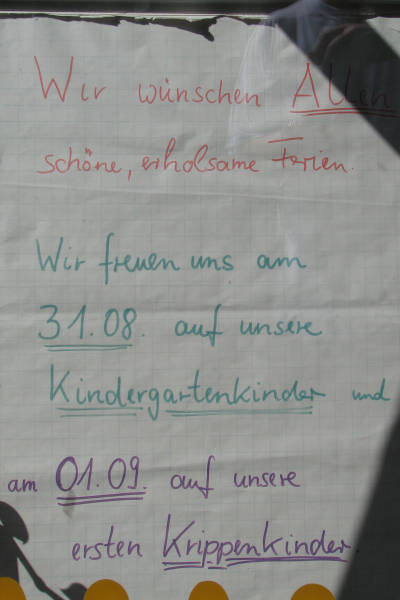 Wir wünschen Allen
schöne, erholsame Ferien.
Wir freuen uns am
31.08. auf unsere
Kindergartenkinder und
am 01.09. auf unsere
ersten Krippenkinder.